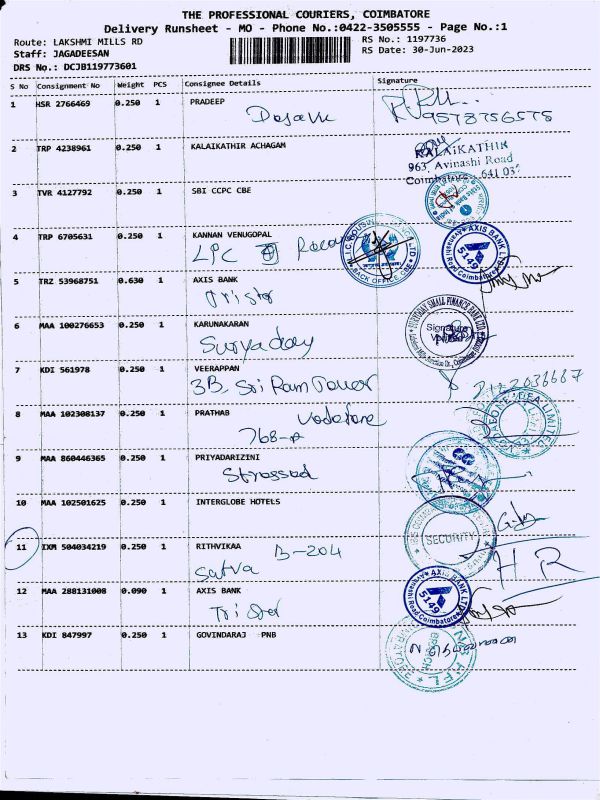 THE PROFESSIONAL COURIERS, COIMBATORE
Delivery Runsheet - MO - Phone No.:0422-3505555 - Page No.:1
Route: LAKSHMI MILLS RD
RS No.: 1197736
Staff: JAGADEESAN
RS Date: 30-Jun-2023
DRS No.: DCJB119773601
S No Consignment No Weight PCS Consignee Details Signature
1 HSR 2766469 0.250 1 PRADEEP
9578756575
2 TRP 4238961 0.250 1 KALAIKATHIR ACHAGAM
KALAIKATHIR
963, Avinashi Road
Coimbatore - 641 037
3 TVR 4127792 0.250 1 SBI CCPC CBE
4 TRP 6705631 0.250 1 KANNAN VENUGOPAL
LPC
BACK OFFICE CBE
AXIS BANK LTD
5149
Avinashi Road Coimbatore
5 TRZ 53968751 0.630 1 AXIS BANK
Tristar
6 MAA 100276653 0.250 1 KARUNAKARAN
Suryaday
SURYODAY SMALL FINANCE BANK LTD
Signature
Verified
7 KDI 561978 0.250 1 VEERAPPAN
3B, Sri Ram Tower
8 MAA 102308137 0.250 1 PRATHAB
Vodafone
768-A
VODAFONE IDEA LIMITED
9 MAA 860446365 0.250 1 PRIYADARIZINI
10 MAA 102501625 0.250 1 INTERGLOBE HOTELS
SECURITY
11 IXM 504034219 0.250 1 RITHVIKAA B-204
Satva
HR
12 MAA 288131008 0.090 1 AXIS BANK
Tristar
AXIS BANK LTD
5149
Avinashi Road Coimbatore
13 KDI 847997 0.250 1 GOVINDARAJ PNB